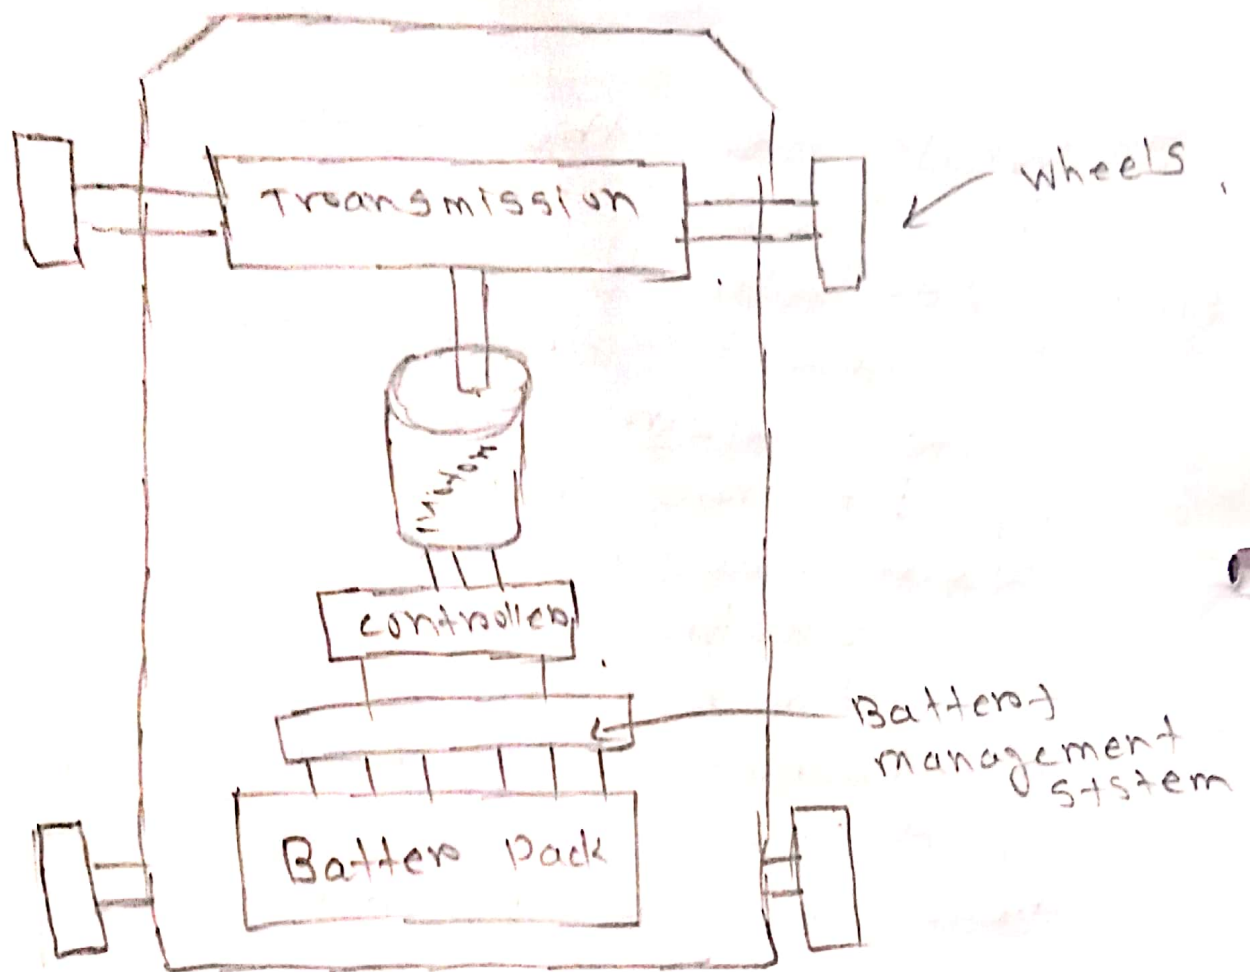 Transmission
wheels
Motor
controller
Battery
management
system
Battery Pack